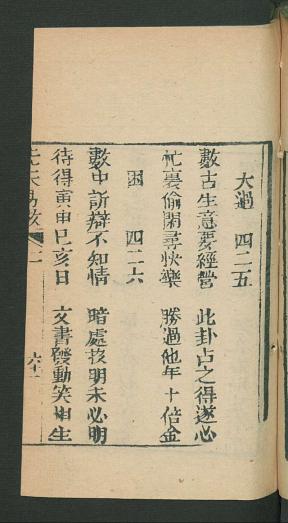 大過 四二五
數古生意要經營 此卦占之得遂心
忙裏偷閑尋快樂 勝過他年十倍金
困 四二六
數中訴辯不知情 暗處技明未必明
待得寅申巳亥日 文書發動笑相生
先天易數 二 六十一